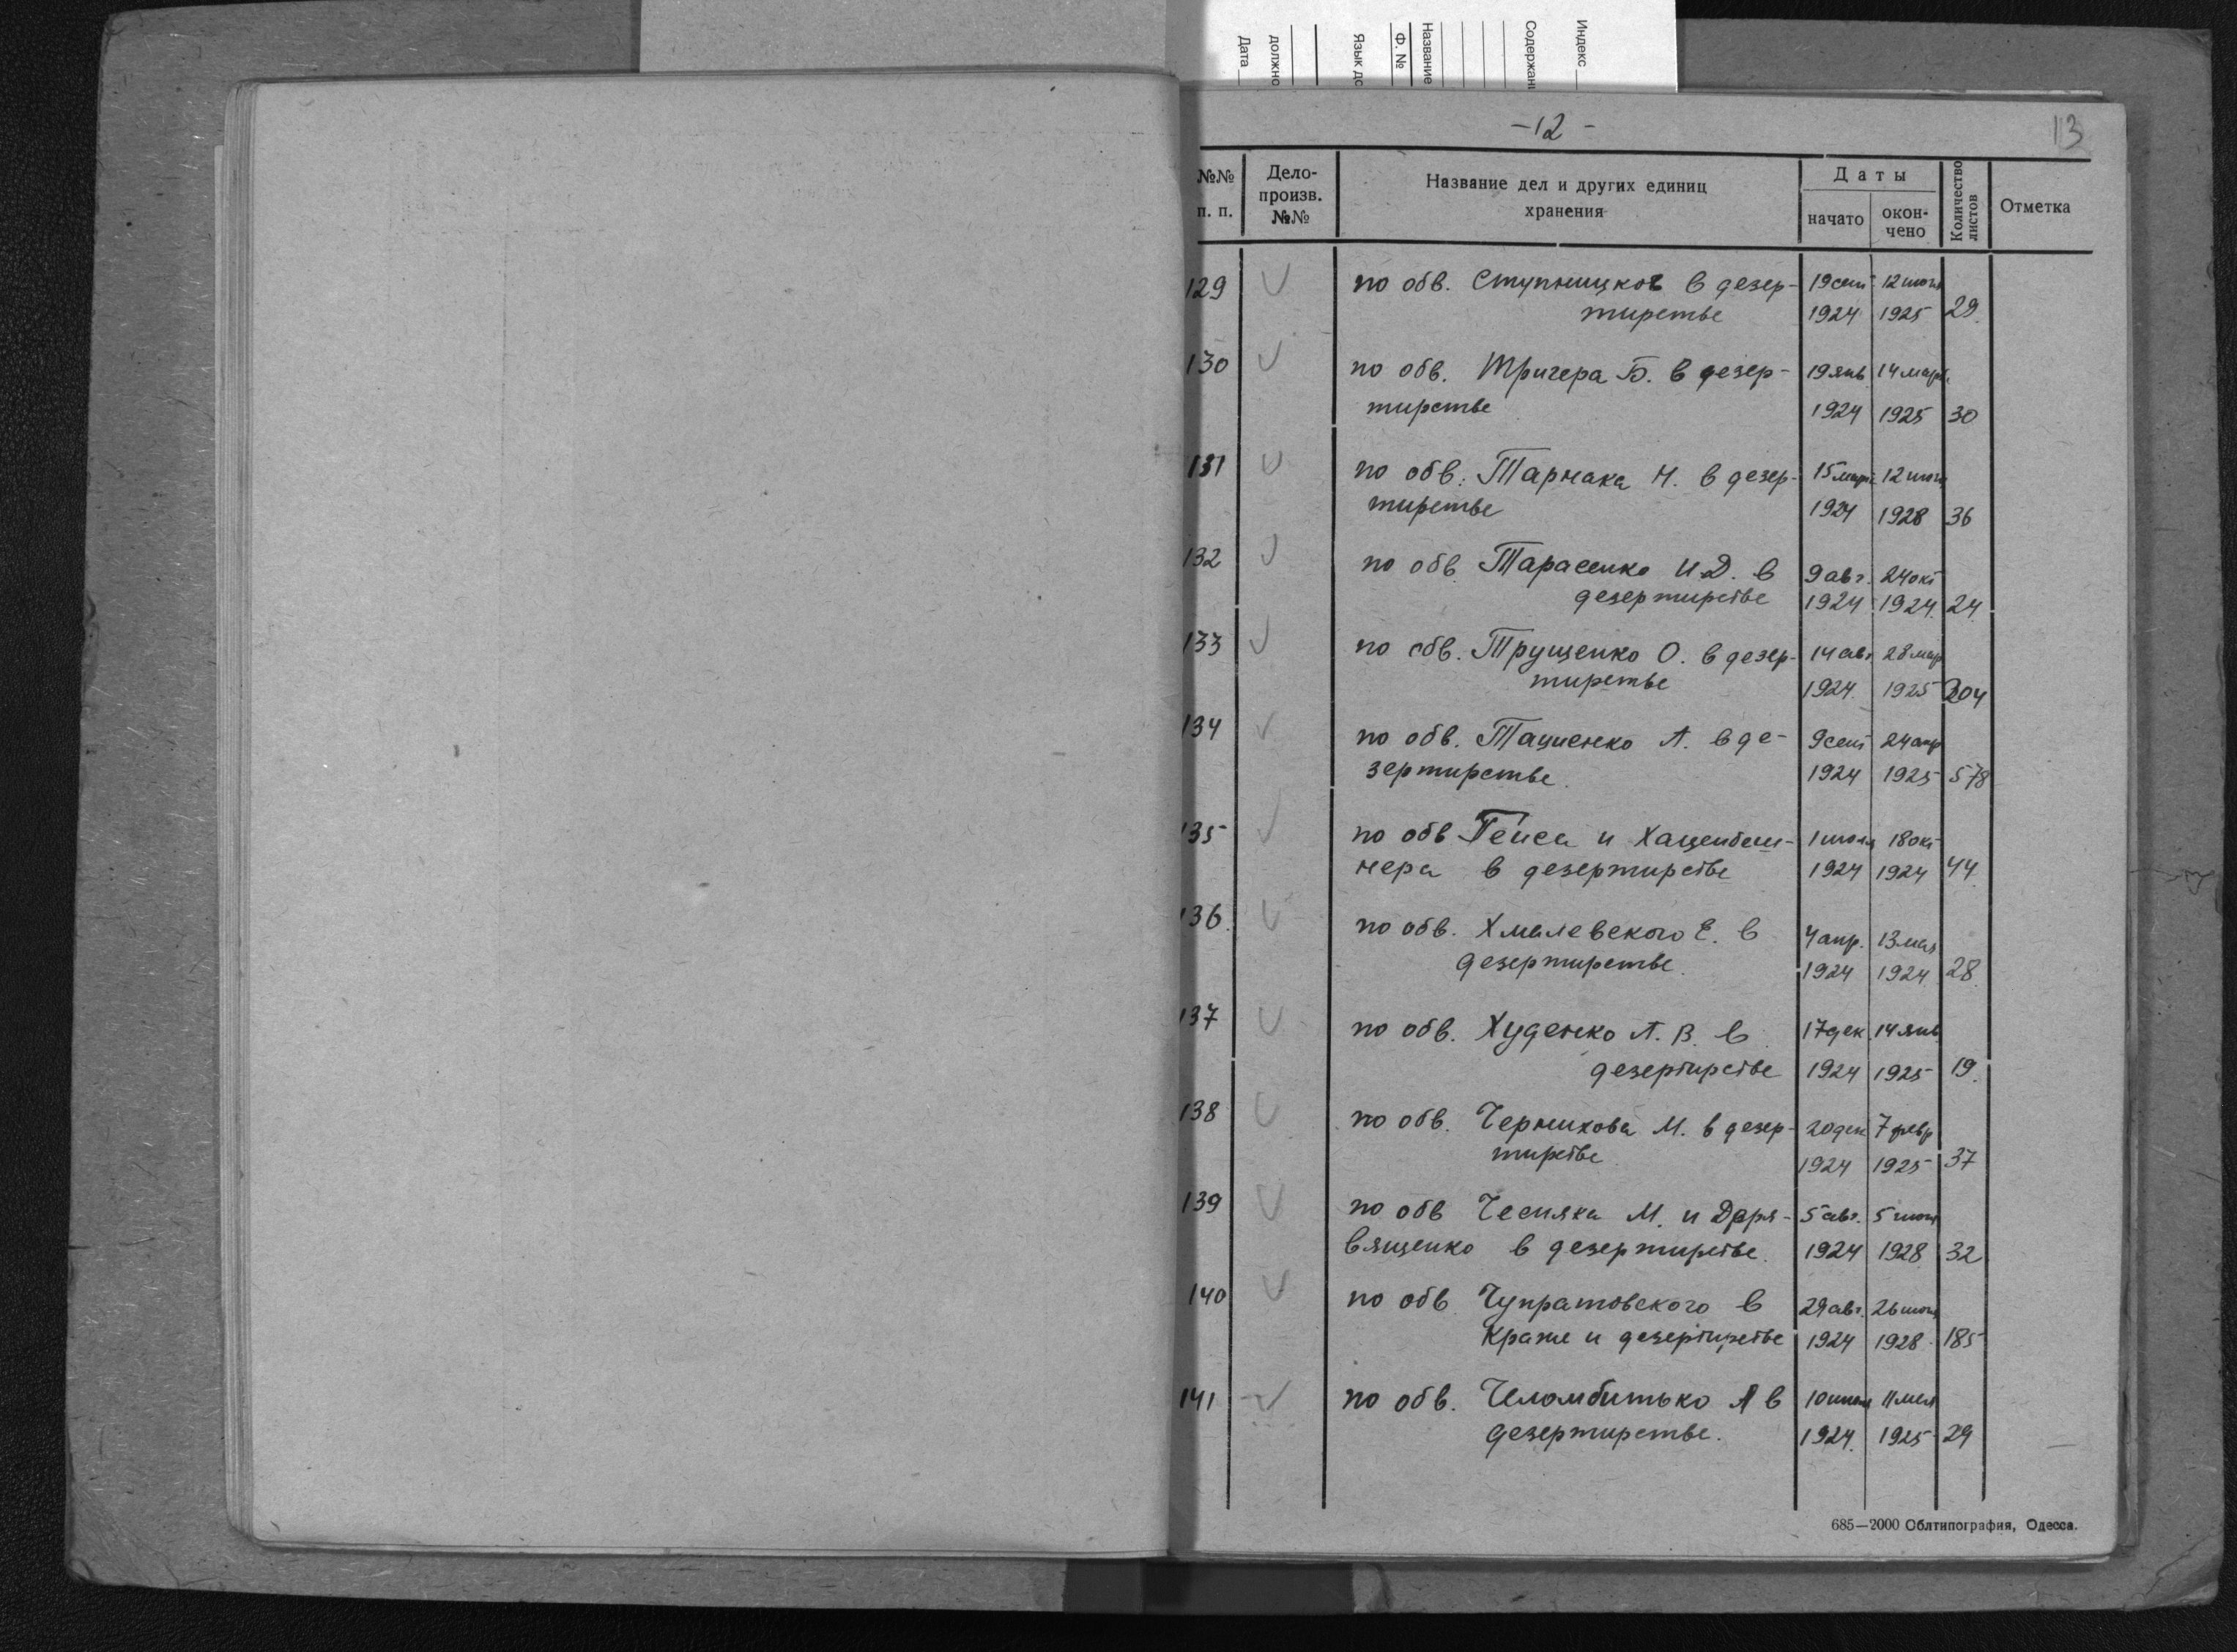 Индекс
Содержани
Название
Ф. №
Язык до
должно
Дата
-12-
13
№№ п. п.
Дело-произв. №№
Название дел и других единиц хранения
Даты
начато
окон-чено
Количество листов
Отметка
129 по обв. Ступницков в дезер- 19 сент 12 июня
тирстве 1924 1925 29
130 по обв. Тригера Б. в дезер- 19 янв 14 марта
тирстве 1924 1925 30
131 по обв. Тарнака Н. в дезер- 15 мар 12 июн
тирстве 1924 1928 36
132 по обв Тарасенко И.Д. в 9 авг. 24 окт
дезертирстве 1924 1924 24
133 по обв. Трущенко О. в дезер- 14 авг 28 мар
тирстве 1924 1925 204
134 по обв. Таценко А. в де- 9 сент 24 апр
зертирстве 1924 1925 578
135 по обв Гейса и Хаценбаш- 1 июля 18 окт
нера в дезертирстве 1924 1924 44
136 по обв. Хмалевского Е. в 4 апр. 13 мая
дезертирстве 1924 1924 28
137 по обв. Худенко А. В. в 17 дек. 14 янв
дезертирстве 1924 1925 19
138 по обв. Черникова М. в дезер- 20 дек 7 февр
тирстве 1924 1925 37
139 по обв Чесняка М. и 5 авг. 5 июн
в дезертирстве. 1924 1928 32
140 по обв. Чупратовского в 29 авг. 26 июн
краже и дезертирстве 1924 1928 185
141 по обв. Челомбитько А в 10 11 мая
дезертирстве. 1924. 1925 29
685—2000 Облтипография, Одесса.